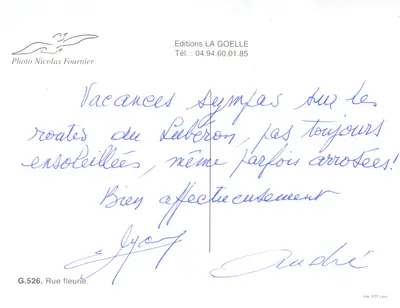 Editions LA GOELLE
Tél. : 04.94.60.01.85
Photo Nicolas Fournier
Vacances sympas sur les
routes du Lubéron, pas toujours
ensoleillées, même parfois arrosées!
Bien affectueusement
André
G.526. Rue fleurie.